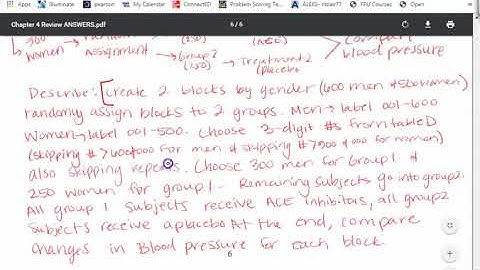 Illuminate pearson My Calendar ConnectED Problem Solving Te... ALEKS- intrax77 FPU Courses
Chapter 4 Review ANSWERS.pdf 6 / 6
women Assignment Group 2 (250) Treatment 2 (Placebo Compare blood pressure
Describe: [Create 2 blocks by gender (600 men & 500 women)
randomy assign blocks to 2 groups. Men → label 001-600
Women → label 001-500. Choose 3-digit #s from table D
(skipping # > 600 & 000 for men & skipping # > 500 & 000 for women)
also skipping repeats. Choose 300 men for Group 1 &
250 women for group 1. Remaining subjects go into group 2.
All group 1 subjects receive ACE Inhibitors, all group 2
subjects receive a placebo At the end, compare
changes in Blood pressure for each block
6